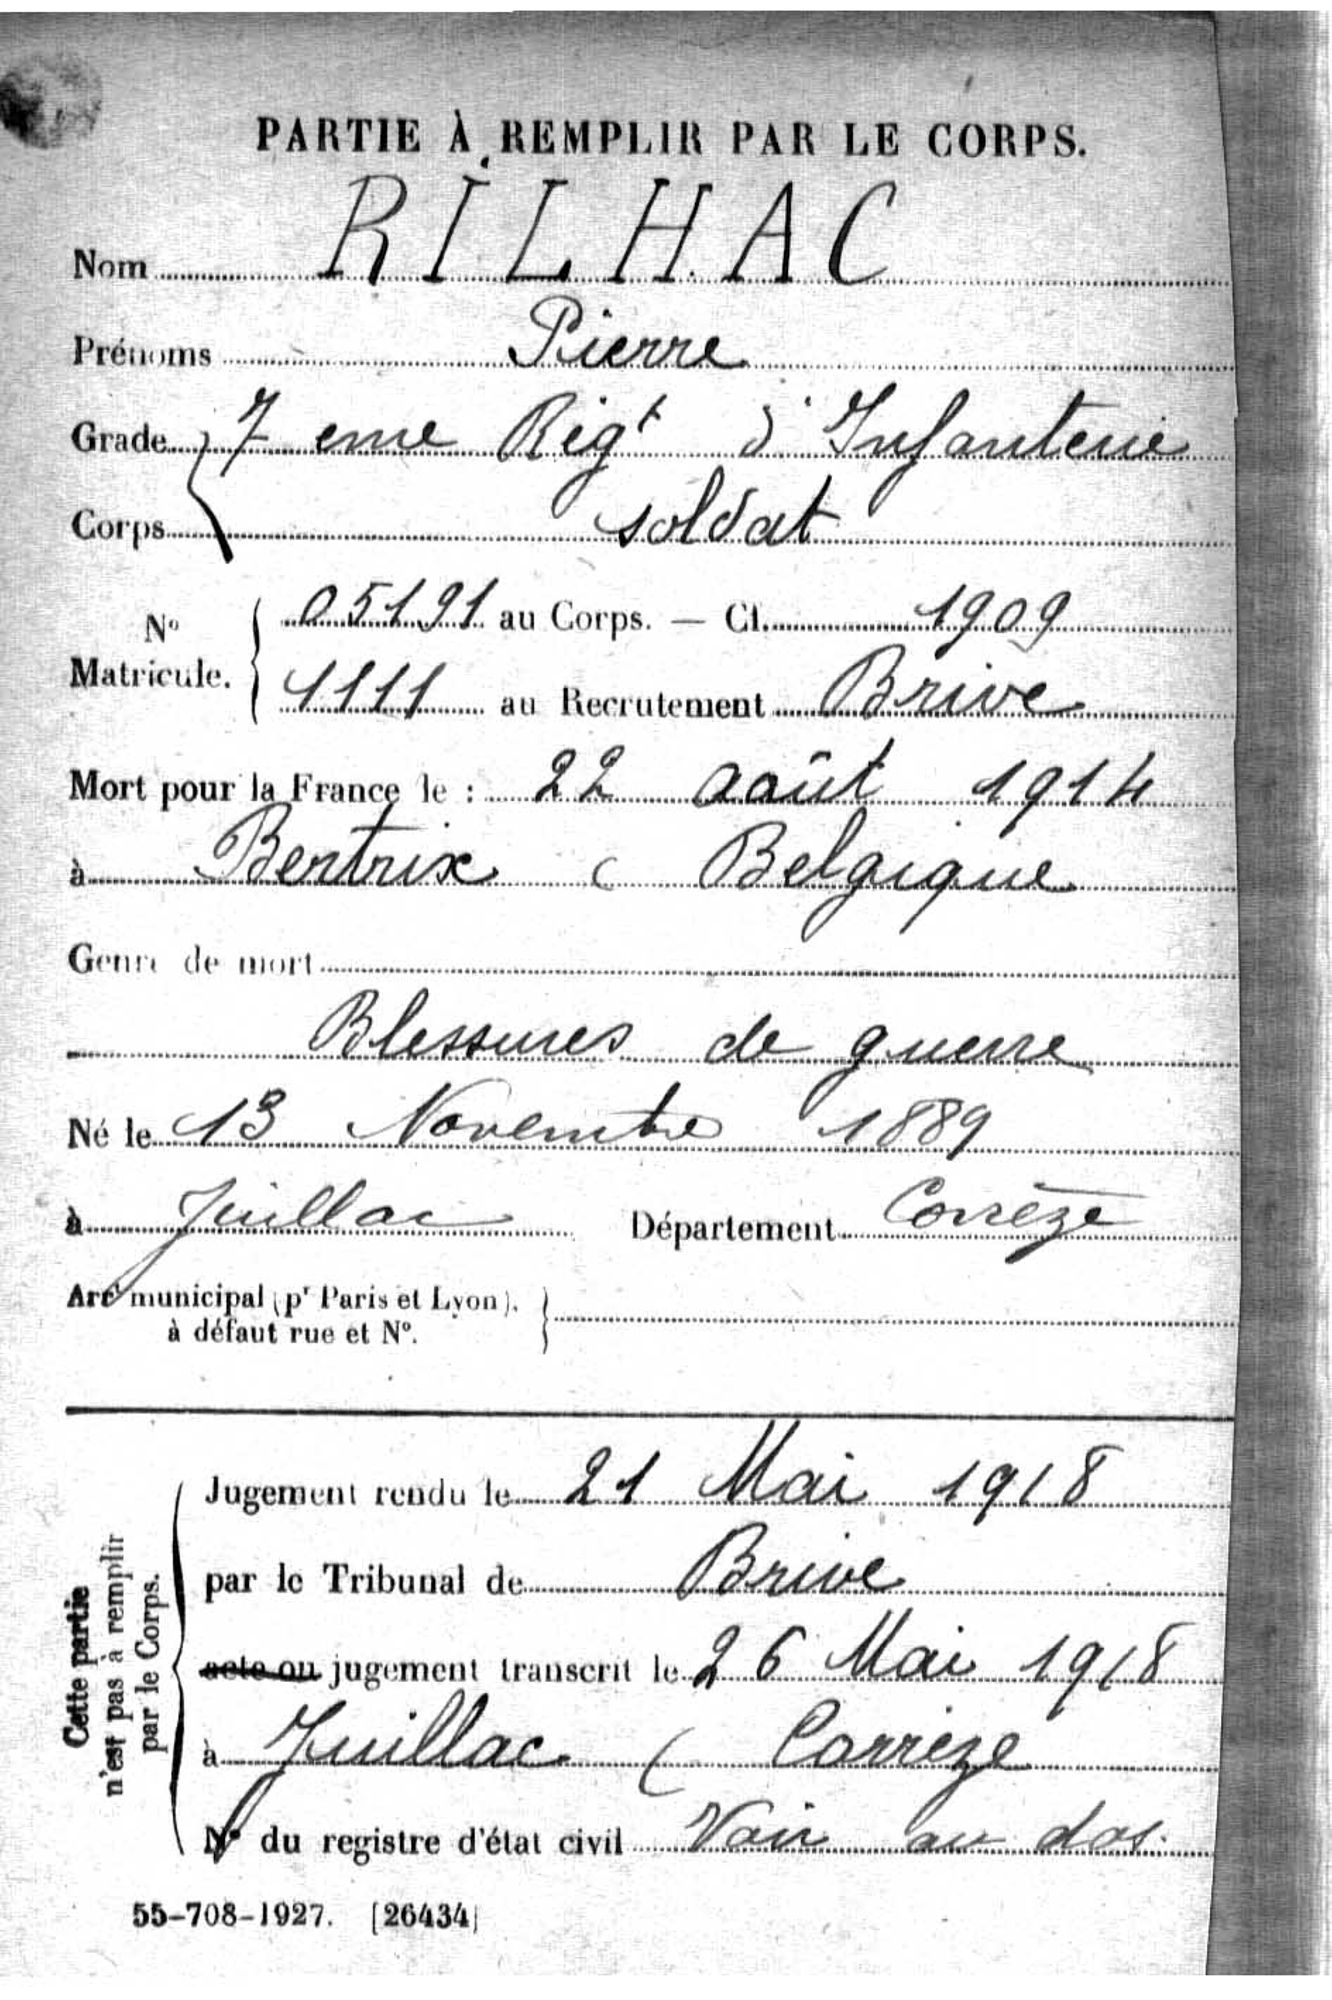 PARTIE À REMPLIR PAR LE CORPS.
Nom RILHAC
Prénoms Pierre
Grade 7 eme Régt d'Infanterie
Corps soldat
No 05191 au Corps. — Cl. 1909
Matricule. 1111 au Recrutement Brive
Mort pour la France le : 22 août 1914
à Bertrix ( Belgique
Genre de mort
Blessures de guerre
Né le 13 Novembre 1889
à Juillac Département Corrèze
Arr municipal (pr Paris et Lyon),
à défaut rue et No.
Cette partie
n'est pas à remplir
par le Corps.
Jugement rendu le 21 Mai 1918
par le Tribunal de Brive
acte ou jugement transcrit le 26 Mai 1918
à Juillac ( Corrèze
No du registre d'état civil Voir au dos.
55-708-1927. [26434]